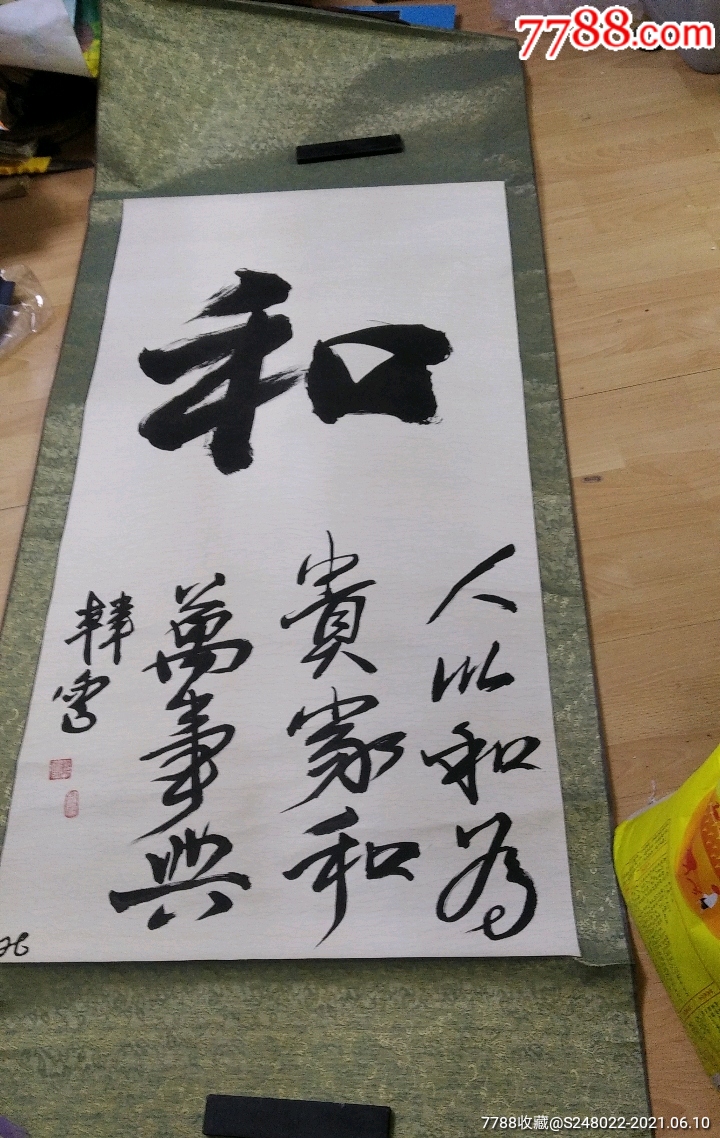 7788.com
和
人以和为
貴家和
萬事興
韓
7788收藏@S248022-2021.06.10